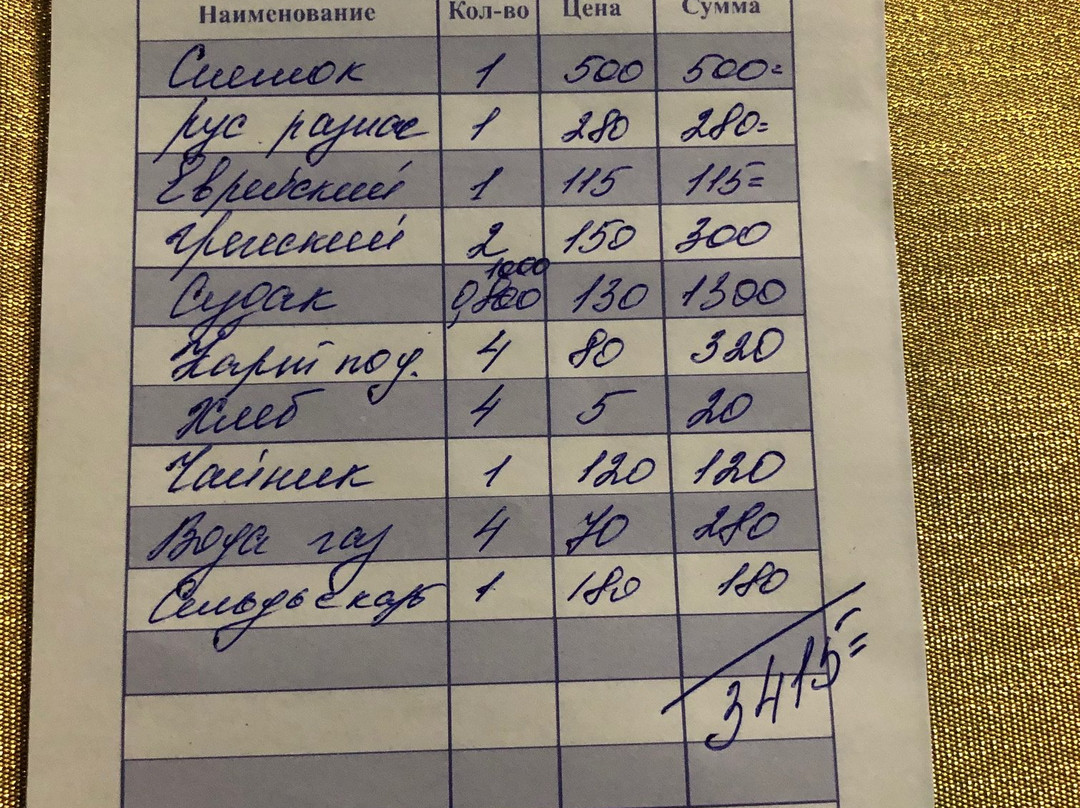 Наименование Кол-во Цена Сумма
Снеток 1 500 500=
рус разнос 1 280 280=
Еврейский 1 115 115=
Греческий 2 150 300
1000
Судак 0,800 130 1300
Карт под. 4 80 320
Хлеб 4 5 20
Чайник 1 120 120
Вода газ 4 70 280
Сельдь с карт 1 180 180
3415=